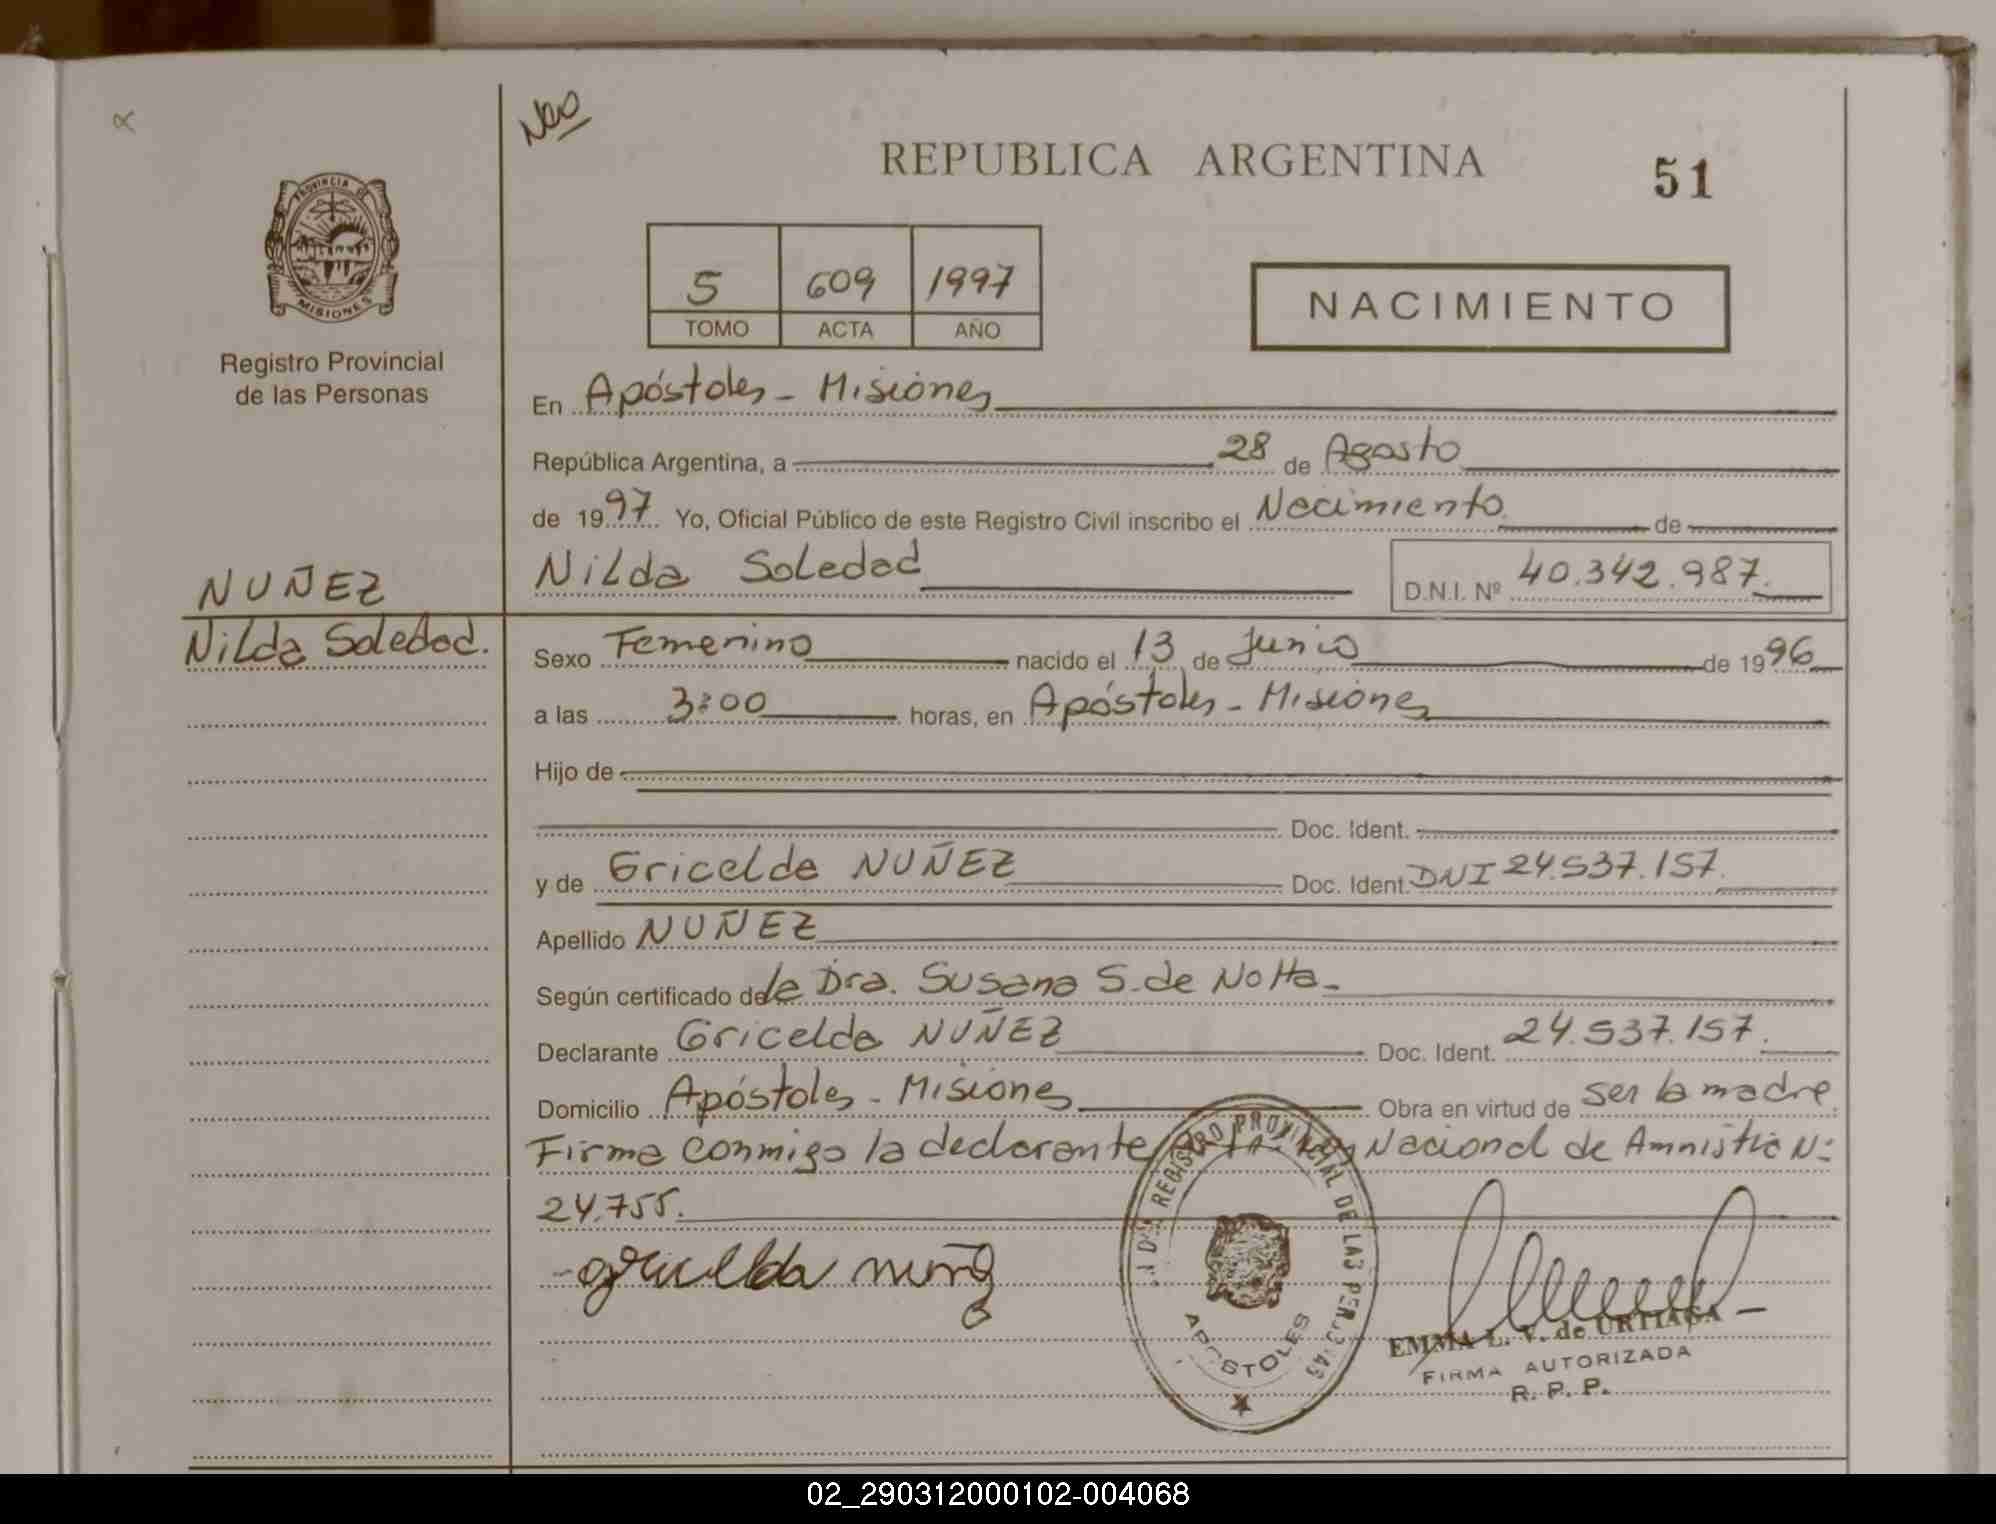 REPUBLICA ARGENTINA
51
PROVINCIA DE
MISIONES
Registro Provincial
de las Personas
5 609 1997
TOMO ACTA AÑO
NACIMIENTO
En Apóstoles - Misiones
República Argentina, a 28 de Agosto
de 1997 Yo, Oficial Público de este Registro Civil inscribo el Nacimiento de
Nilda Soledad
D.N.I. Nº 40.342.987.
NUÑEZ
Nilda Soledad.
Sexo Femenino nacido el 13 de Junio de 1996
a las 3:00 horas, en Apóstoles - Misiones
Hijo de
Doc. Ident.
y de Gricelda NUÑEZ Doc. Ident. DNI 24.537.157.
Apellido NUÑEZ
Según certificado de la Dra. Susana S. de Notta -
Declarante Gricelda NUÑEZ Doc. Ident. 24.537.157.
Domicilio Apóstoles - Misiones Obra en virtud de ser la madre.
Firma conmigo la declarante Ley Nacional de Amnistia Nº
24.755.
gricelda nuñez
REGISTRO PROVINCIAL DE LAS PERSONAS
APOSTOLES
EMMA L. V. de URTIAGA
FIRMA AUTORIZADA
R. P. P.
02_290312000102-004068